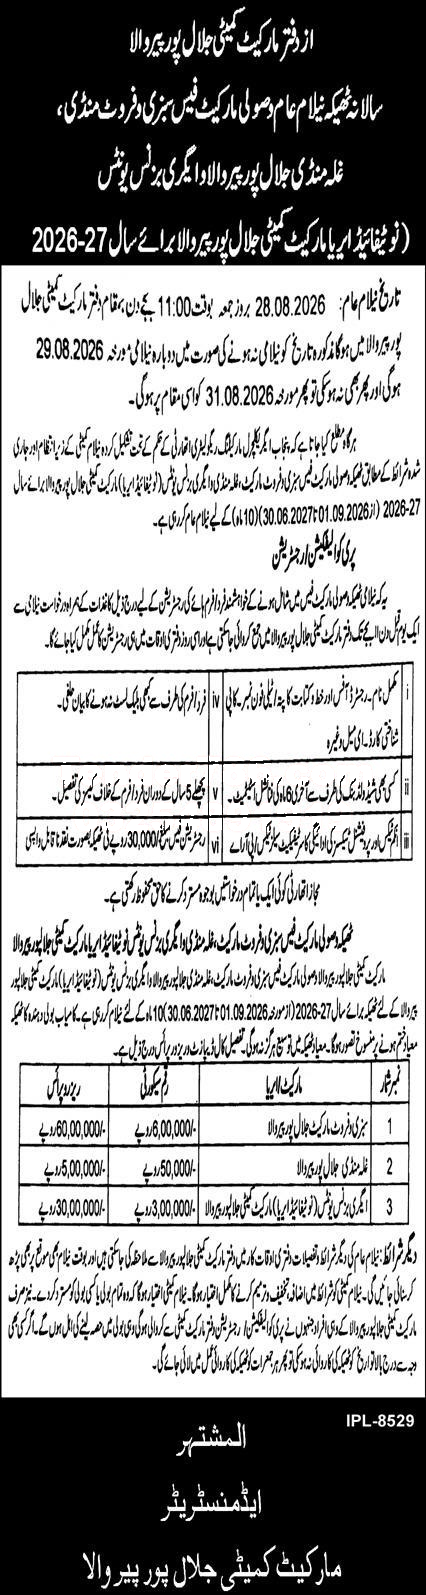 از دفتر مارکیٹ کمیٹی جلال پور پیروالا
سالانہ ٹھیکہ نیلام عام وصولی مارکیٹ فیس سبزی وفروٹ منڈی،
غلہ منڈی جلال پور پیروالا و ایگری بزنس یونٹس
(نوٹیفائیڈ ایریا مارکیٹ کمیٹی جلال پور پیروالا برائے سال 27-2026
تاریخ نیلام عام: 28.08.2026 بروز جمعہ بوقت 11:00 بجے دن بمقام دفتر مارکیٹ کمیٹی جلال
پور پیروالا میں ہوگا مذکورہ تاریخ کو نیلامی نہ ہونے کی صورت میں دوبارہ نیلامی مورخہ 29.08.2026
ہوگی اور پھر بھی نہ ہو سکی تو پھر مورخہ 31.08.2026 کو اسی مقام پر ہوگی۔
ہر گاہ مطلع کیا جاتا ہے کہ پنجاب ایگریکلچرل مارکیٹنگ ریگولیٹری اتھارٹی کے حکم کے تحت تشکیل کردہ نیلام کمیٹی کے زیر انتظام اور جاری
شدہ شرائط کے مطابق ٹھیکہ وصولی مارکیٹ فیس سبزی وفروٹ مارکیٹ، غلہ منڈی و ایگری بزنس یونٹس (نوٹیفائیڈ ایریا) مارکیٹ کمیٹی جلال پور پیروالا برائے سال
27-2026 (از 01.09.2026 تا 30.06.2027) (10 ماہ) کے لیے نیلام عام کر رہی ہے۔
پری کوالیفکیشن / رجسٹریشن
یہ کہ نیلامی ٹھیکہ وصولی مارکیٹ فیس میں شامل ہونے کے خواہشمند فرد / فرم ہائے کی رجسٹریشن کے لیے درج ذیل کاغذات کے ہمراہ درخواست نیلامی سے
ایک یوم قبل دن 11 بجے تک دفتر مارکیٹ کمیٹی جلال پور پیروالا میں جمع کروائی جاسکتی ہے اور اسی روز دفتری اوقات میں ہی رجسٹریشن کا عمل مکمل کیا جائے گا۔
i مکمل نام۔ رجسٹرڈ آفس اور خط و کتابت کا پتہ و ٹیلی فون نمبر۔ کاپی شناختی کارڈ۔ ای میل وغیرہ iv فرد / فرم کی طرف سے کبھی بلیک لسٹ نہ ہونے کا بیان حلفی۔
ii کسی بھی شیڈولڈ بنک کی طرف سے آخری 6 ماہ کی فنانشل اسٹیٹمنٹ۔ v پچھلے 5 سال کے دوران فرد / فرم کے خلاف کیسز کی تفصیل۔
iii انکم ٹیکس اور پروفیشنل ٹیکسز کی ادائیگی کا سرٹیفکیٹ سیلز ٹیکس / پی آر اے vi رجسٹریشن فیس مبلغ -/30,000 روپے فی ٹھیکہ بصورت نقد ناقابل واپسی
مجاز اتھارٹی کوئی ایک یا تمام درخواستیں بوجوہ مسترد کرنے کا حق محفوظ رکھتی ہے۔
ٹھیکہ وصولی مارکیٹ فیس سبزی وفروٹ مارکیٹ، غلہ منڈی و ایگری بزنس یونٹس نوٹیفائیڈ ایریا مارکیٹ کمیٹی جلالپور پیروالا
مارکیٹ کمیٹی جلالپور پیروالا وصولی مارکیٹ فیس سبزی وفروٹ مارکیٹ، غلہ منڈی و ایگری بزنس یونٹس (نوٹیفائیڈ ایریا) مارکیٹ کمیٹی جلالپور
پیروالا کے لئے ٹھیکہ برائے سال 27-2026 (از مورخہ 01.09.2026 تا 30.06.2027) 10 ماہ کے لئے نیلام کر رہی ہے۔ کامیاب بولی دہندہ کا ٹھیکہ
معیاد ختم ہونے پر منسوخ تصور ہوگا۔ معیاد ٹھیکہ میں توسیع ہرگز نہ ہوگی۔ تفصیل کال ڈیپازٹ و ریزرو پرائس درج ذیل ہے۔
نمبر شمار مارکیٹ / ایریا رقم سیکورٹی ریزرو پرائس
1 سبزی وفروٹ مارکیٹ جلال پور پیروالا -/6,00,000 روپے -/60,00,000 روپے
2 غلہ منڈی جلال پور پیروالا -/50,000 روپے -/5,00,000 روپے
3 ایگری بزنس یونٹس (نوٹیفائیڈ ایریا) مارکیٹ کمیٹی جلالپور پیروالا -/3,00,000 روپے -/30,00,000 روپے
دیگر شرائط: نیلام عام کی دیگر شرائط و تفصیلات دفتری اوقات کار میں دفتر مارکیٹ کمیٹی جلالپور پیروالا سے ملاحظہ کی جاسکتی ہیں اور بوقت نیلام بھی موقع پر بھی پڑھ
کر سنائی جائیں گی۔ نیلام کمیٹی کو شرائط میں اضافہ، تخفیف و ترمیم کرنے کا مکمل اختیار ہوگا۔ نیلام کمیٹی کو اختیار ہوگا کہ وہ تمام بولی یا کسی بولی کو مسترد کر دے۔ نیز صرف
مارکیٹ کمیٹی جلالپور پیروالا کے وہی افراد جنہوں نے پری کوالیفکیشن / رجسٹریشن دفتر مارکیٹ کمیٹی سے کروالی ہوگی وہی بولی میں حصہ لینے کی اہل ہوں گے۔ اگر کسی بھی
وجہ سے درج بالا تواریخ کو ٹھیکہ کی کاروائی نہ ہو سکی تو پھر ہر جمعرات کو ٹھیکہ کی کاروائی عمل میں لائی جائے گی۔
IPL-8529
المشتہر
ایڈمنسٹریٹر
مارکیٹ کمیٹی جلال پور پیر والا